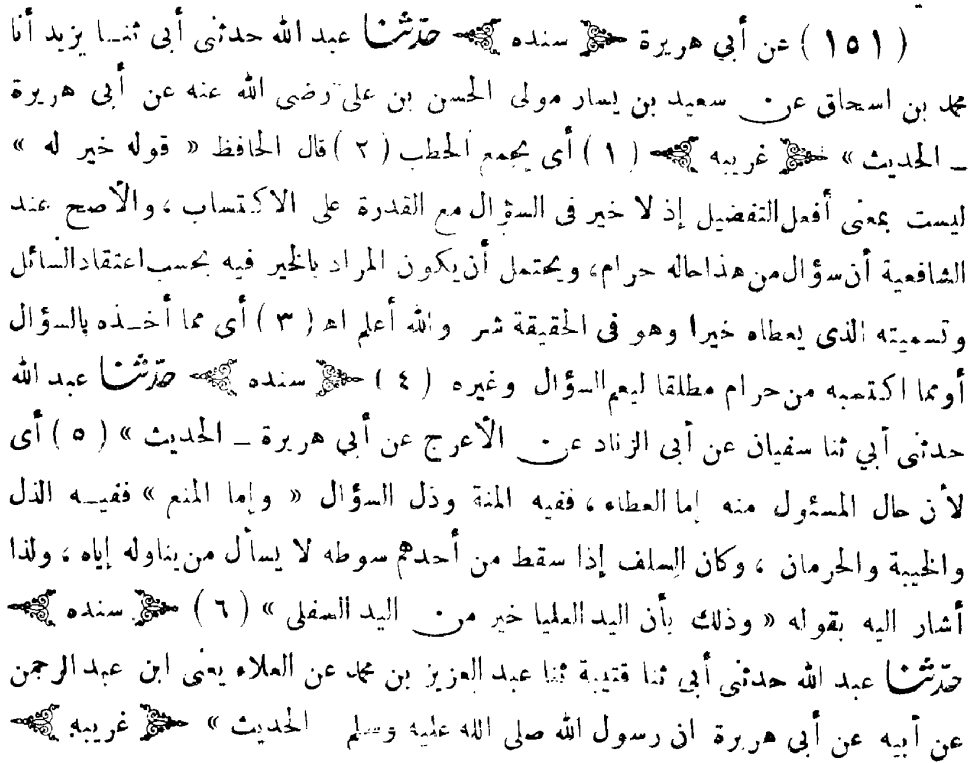 ( ١٥١ ) عن أبي هريرة ﴿ سنده ﴾ حدّثنا عبد الله حدثنى أبى ثنا يزيد أنا
محمد بن اسحاق عن سعيد بن يسار مولى الحسن بن على رضى الله عنه عن أبى هريرة
ـ الحديث » ﴿ غريبه ﴾ ( ١ ) أى يجمع الحطب ( ٢ ) قال الحافظ « قوله خير له »
ليست بمعنى أفعل التفضيل إذ لا خير فى السؤال مع القدرة على الاكتساب ، والأصح عند
الشافعية أن سؤال من هذا حاله حرام، ويحتمل أن يكون المراد بالخير فيه بحسب اعتقاد السائل
وتسميته الذى يعطاه خيرا وهو فى الحقيقة شر والله أعلم اهـ ( ٣ ) أى مما أخذه بالسؤال
أو مما اكتسبه من حرام مطلقا ليعم السؤال وغيره ( ٤ ) ﴿ سنده ﴾ حدّثنا عبد الله
حدثنى أبي ثنا سفيان عن أبى الزناد عن الأعرج عن أبي هريرة ـ الحديث » ( ٥ ) أى
لأن حال المسئول منه إما العطاء ، ففيه المنة وذل السؤال « وإما المنع » ففيه الذل
والخيبة والحرمان ، وكان السلف إذا سقط من أحدهم سوطه لا يسأل من يناوله إياه ، ولذا
أشار اليه بقوله « وذلك بأن اليد العليا خير من اليد السفلى » ( ٦ ) ﴿ سنده ﴾
حدّثنا عبد الله حدثنى أبي ثنا قتيبة ثنا عبد العزيز بن محمد عن العلاء يعنى ابن عبد الرحمن
عن أبيه عن أبى هريرة ان رسول الله صلى الله عليه وسلم الحديث » ﴿ غريبه ﴾